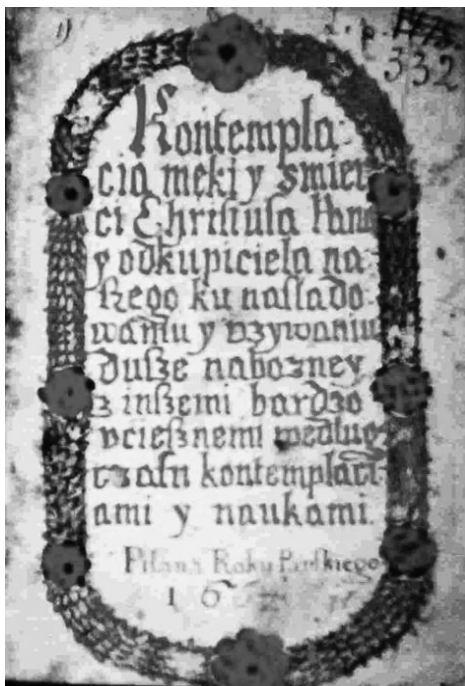 332
Kontempla
cia męki y smier
ci Christusa Pana
y odkupiciela na
szego ku naslado
waniu y vzywaniu
dusze nabozney
z inszemi bardzo
vciesznemi według
czasu kontemplaci
ami y naukami.
Pisana Roku Pańskiego
16